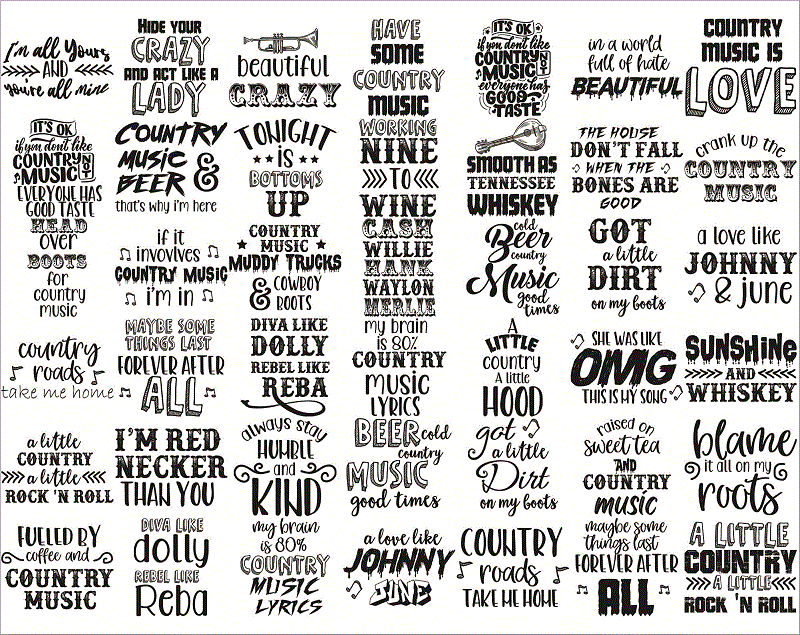 I'm all Yours
AND
you're all mine
It's OK
if you don't like
COUNTRY
MUSIC
NOT
EVERYONE HAS
GOOD TASTE
HEAD
over
BOOTS
for
country
music
country
roads
take me home
a little
COUNTRY
a little
ROCK 'N ROLL
FUELED BY
coffee and
COUNTRY
MUSIC
HIDE YOUR
CRAZY
AND ACT LIKE A
LADY
COUNTRY
MUSIC
&
BEER
that's why i'm here
if it
involvles
COUNTRY MUSIC
i'm in
MAYBE SOME
THINGS LAST
FOREVER AFTER
ALL
I'M RED
NECKER
THAN YOU
DIVA LIKE
dolly
REBEL LIKE
Reba
beautiful
CRAZY
TONIGHT
IS
BOTTOMS
UP
COUNTRY
MUSIC
MUDDY TRUCKS
&
COWBOY
BOOTS
DIVA LIKE
DOLLY
REBEL LIKE
REBA
always stay
HUMBLE
and
KIND
my brain
is 80%
COUNTRY
MUSIC
LYRICS
HAVE
SOME
COUNTRY
MUSIC
WORKING
NINE
TO
WINE
CASH
WILLIE
HANK
WAYLON
MERLE
my brain
is 80%
COUNTRY
music
LYRICS
BEER cold
country
MUSIC
good times
a love like
JOHNNY
JUNE
IT'S OK
if you don't like
COUNTRY
MUSIC
everyone has
GOOD
TASTE
SMOOTH AS
TENNESSEE
WHISKEY
cold
Beer
country
Music
good
times
A
LITTLE
country
A little
HOOD
got
a little
Dirt
on my boots
COUNTRY
roads
TAKE ME HOME
in a world
full of hate
BEAUTIFUL
THE HOUSE
DON'T FALL
WHEN THE
BONES ARE
GOOD
GOT
a little
DIRT
on my boots
SHE WAS LIKE
OMG
THIS IS MY SONG
raised on
sweet tea
AND
COUNTRY
music
maybe some
things last
FOREVER AFTER
ALL
COUNTRY
MUSIC IS
LOVE
crank up the
COUNTRY
MUSIC
a love like
JOHNNY
& june
SUNSHINE
AND
WHISKEY
blame
it all on my
roots
A LITTLE
COUNTRY
A LITTLE
ROCK 'N ROLL